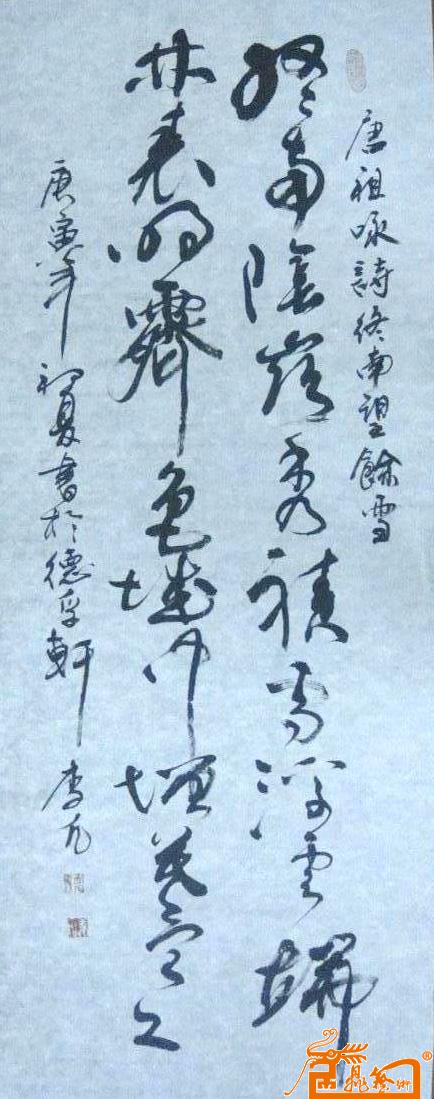 唐祖咏詩终南望餘雪
终南陰嶺秀積雪浮雲端
林表明霽色城中增暮寒
庚寅年初夏書於德孚軒李